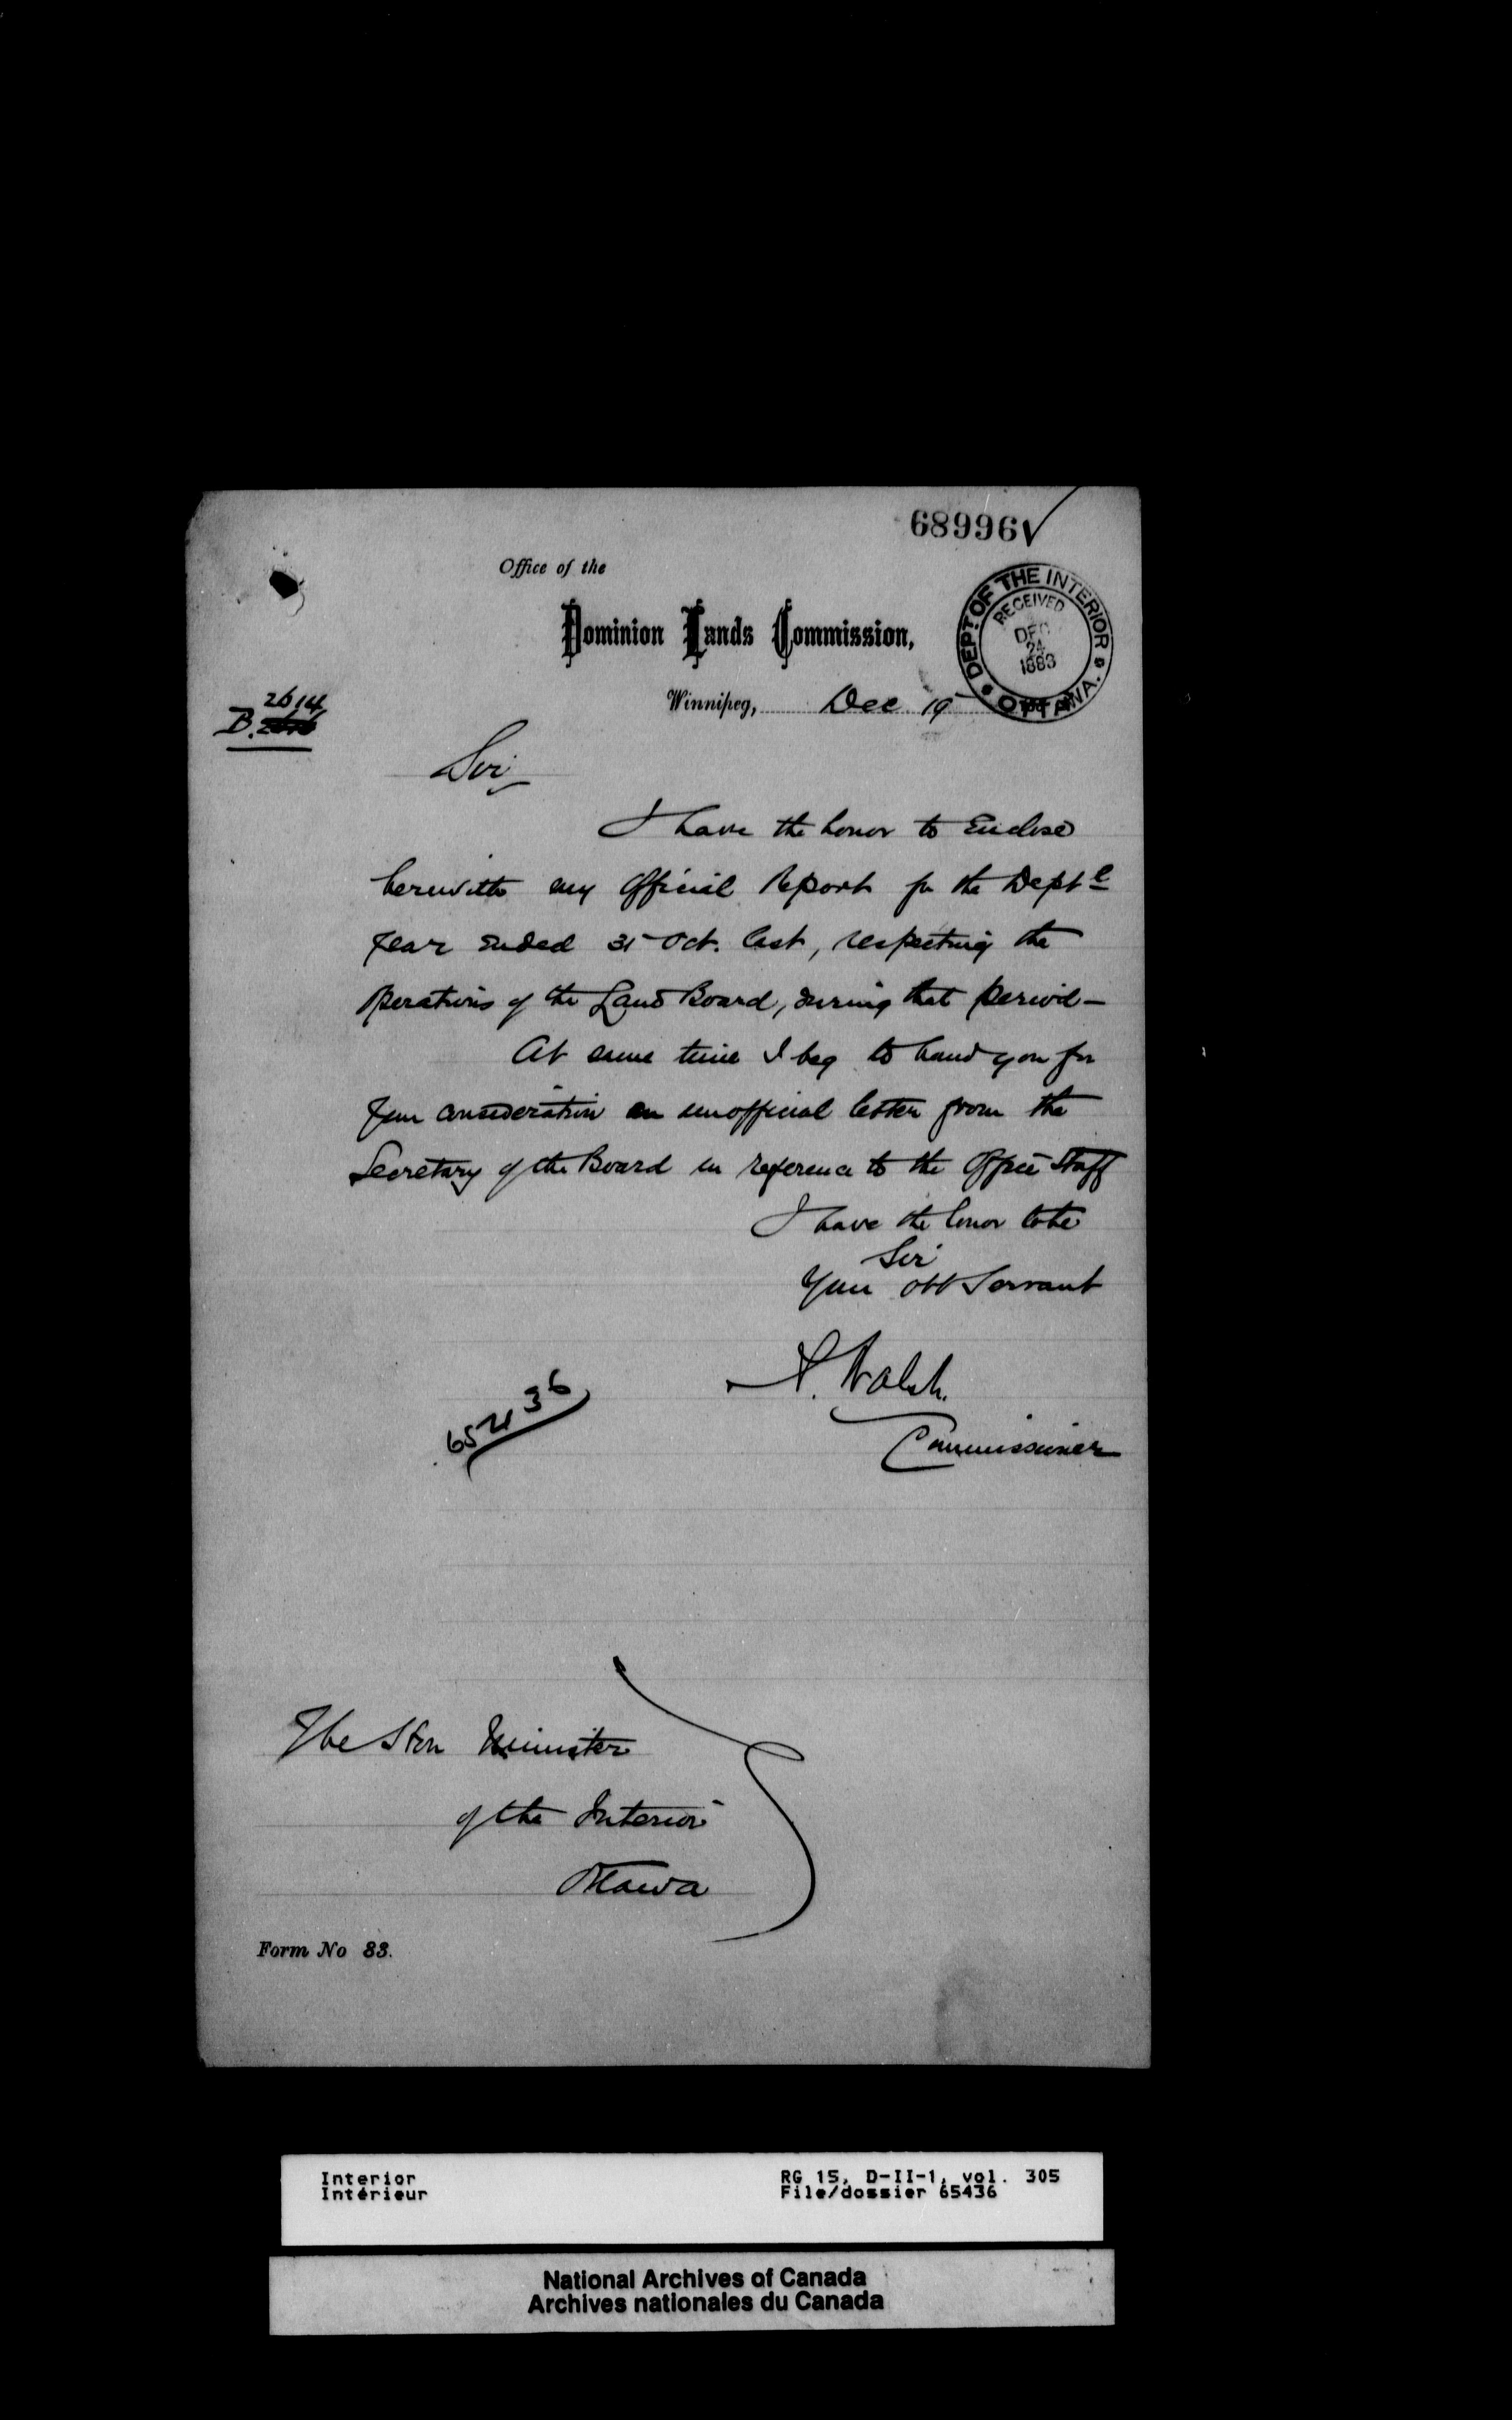 68996
Office of the
Dominion Lands Commission,
DEPT OF THE INTERIOR
RECEIVED
DEC
24
1883
OTTAWA.
Winnipeg, Dec. 19
2614
B.
Sir
I have the honor to Enclose
herewith my Official Report for the Deptl
Year Ended 31 Oct. last, respecting the
Operations of the Land Board, during that period —
At same time I beg to hand you for
your consideration an unofficial letter from the
Secretary of the Board in reference to the Office Staff
I have the honor to be
Sir
Your Obt Servant
A. Walsh.
Commissioner
65436
The Hon Minister
of the Interior
Ottawa
Form No 83.
Interior
Intérieur
RG 15, D-II-1, vol. 305
File/dossier 65436
National Archives of Canada
Archives nationales du Canada